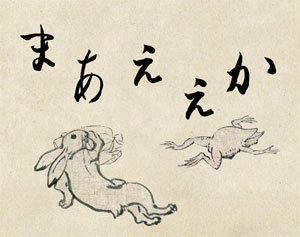 まあええか